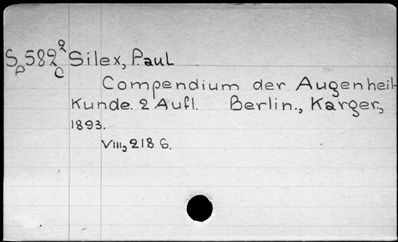 Sp582²c Silex, Paul
Compendium der Augenheil-
Kunde. 2 Aufl. Berlin., Karger,
1893.
VIII, 218 S.